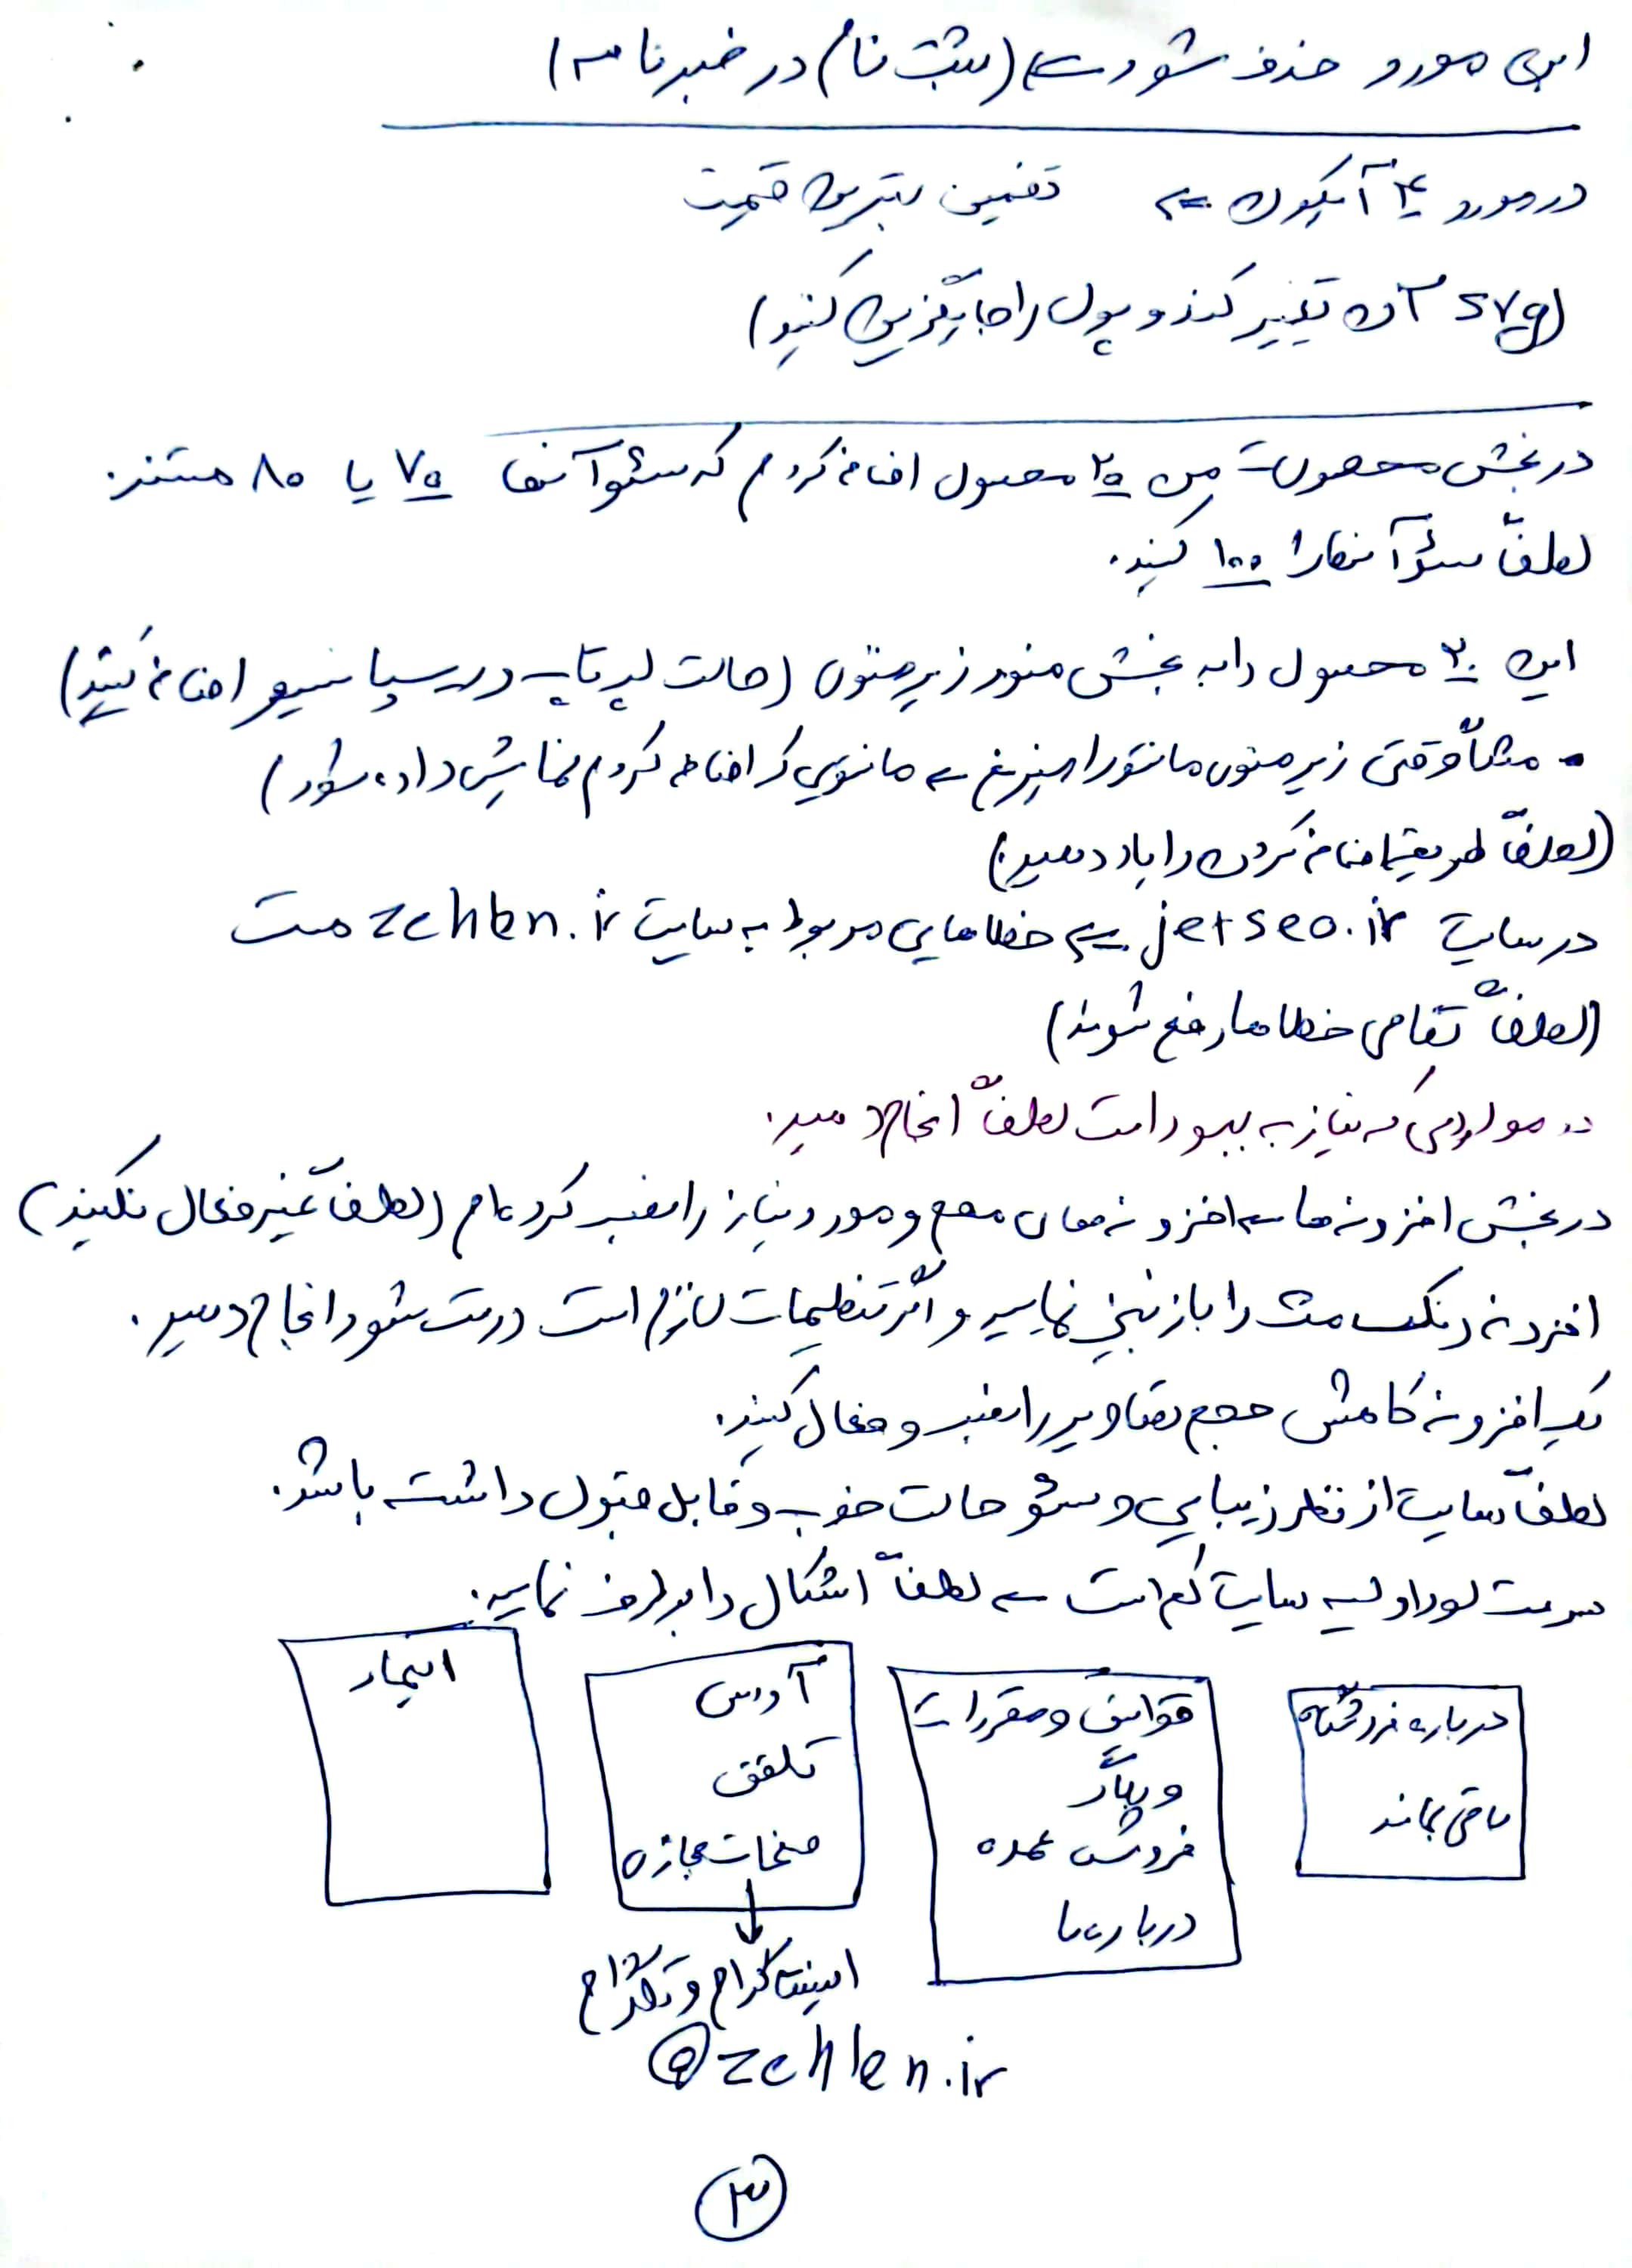 این مورد حذف شود ← (ثبت نام در خبرنامه)
در مورد ۴ آیکون ← تضمین بهترین قیمت
(svg آن تغییر کند و پول را جایگزین کنید)
در بخش محصولات من ۲۰ محصول اضافه کردم که سئو آنها ۷۰ یا ۸۰ هستند.
لطفاً سئو آنها را ۱۰۰ کنید.
این ۲۰ محصول را به بخش منو در زیر منوی (حالت لپ تاپ و ریسپانسیو اضافه کنید)
- مثلاً وقتی زیر منوی مانتو را میزنم ← مانتویی که اضافه کردم نمایش داده شود)
(لطفاً طریقه اضافه کردن را یاد دهید)
در سایت jetseo.ir ← خطاهایی مربوط به سایت zehlen.ir هست
(لطفاً تمامی خطاها رفع شوند)
در مواردی که نیاز به بهبود است لطفاً انجام دهید.
در بخش افزونه ها ← افزونه های مهم و مورد نیاز را نصب کرده ام (لطفاً غیر فعال نکنید)
افزونه رنک مث را بازبینی نمایید و اگر تنظیمات لازم است درست شود انجام دهید.
یک افزونه کاهش حجم تصاویر را نصب و فعال کنید.
لطفاً سایت از نظر زیبایی و سئو حالت خوب و قابل قبول داشته باشد.
سرعت لود اولیه سایت کم است ← لطفاً اشکال را برطرف نمایید.
درباره فروشگاه
باقی بماند
قوانین و مقررات
وبلاگ
فروش عمده
درباره ما
آدرس
تلفن
صفحات مجازی
اینستاگرام و تلگرام
@zehlen.ir
اینماد
۳